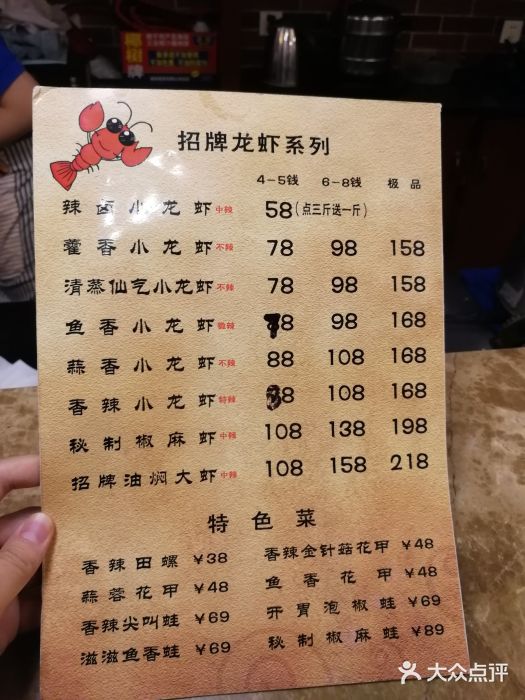 椰树牌
招牌龙虾系列
4-5钱 6-8钱 极品
辣卤小龙虾中辣 58(点三斤送一斤)
藿香小龙虾不辣 78 98 158
清蒸仙气小龙虾不辣 78 98 158
鱼香小龙虾微辣 78 98 168
蒜香小龙虾不辣 88 108 168
香辣小龙虾特辣 88 108 168
秘制椒麻虾中辣 108 138 198
招牌油焖大虾中辣 108 158 218
特色菜
香辣田螺 ¥38 香辣金针菇花甲 ¥48
蒜蓉花甲 ¥48 鱼香花甲 ¥48
香辣尖叫蛙 ¥69 开胃泡椒蛙 ¥69
滋滋鱼香蛙 ¥69 秘制椒麻蛙 ¥89
大众点评